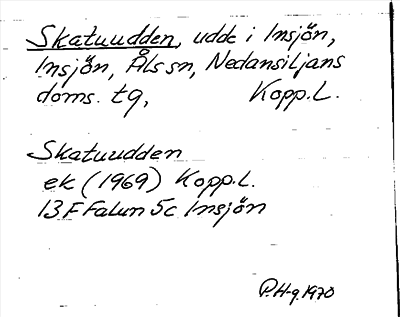 Skatuudden, udde i Insjön,
Insjön, Åls sn, Nedansiljans
doms. tg, Kopp.L.
Skatuudden
ek (1969) Kopp.L.
13 F Falun 5c Insjön
P.H-g.1970